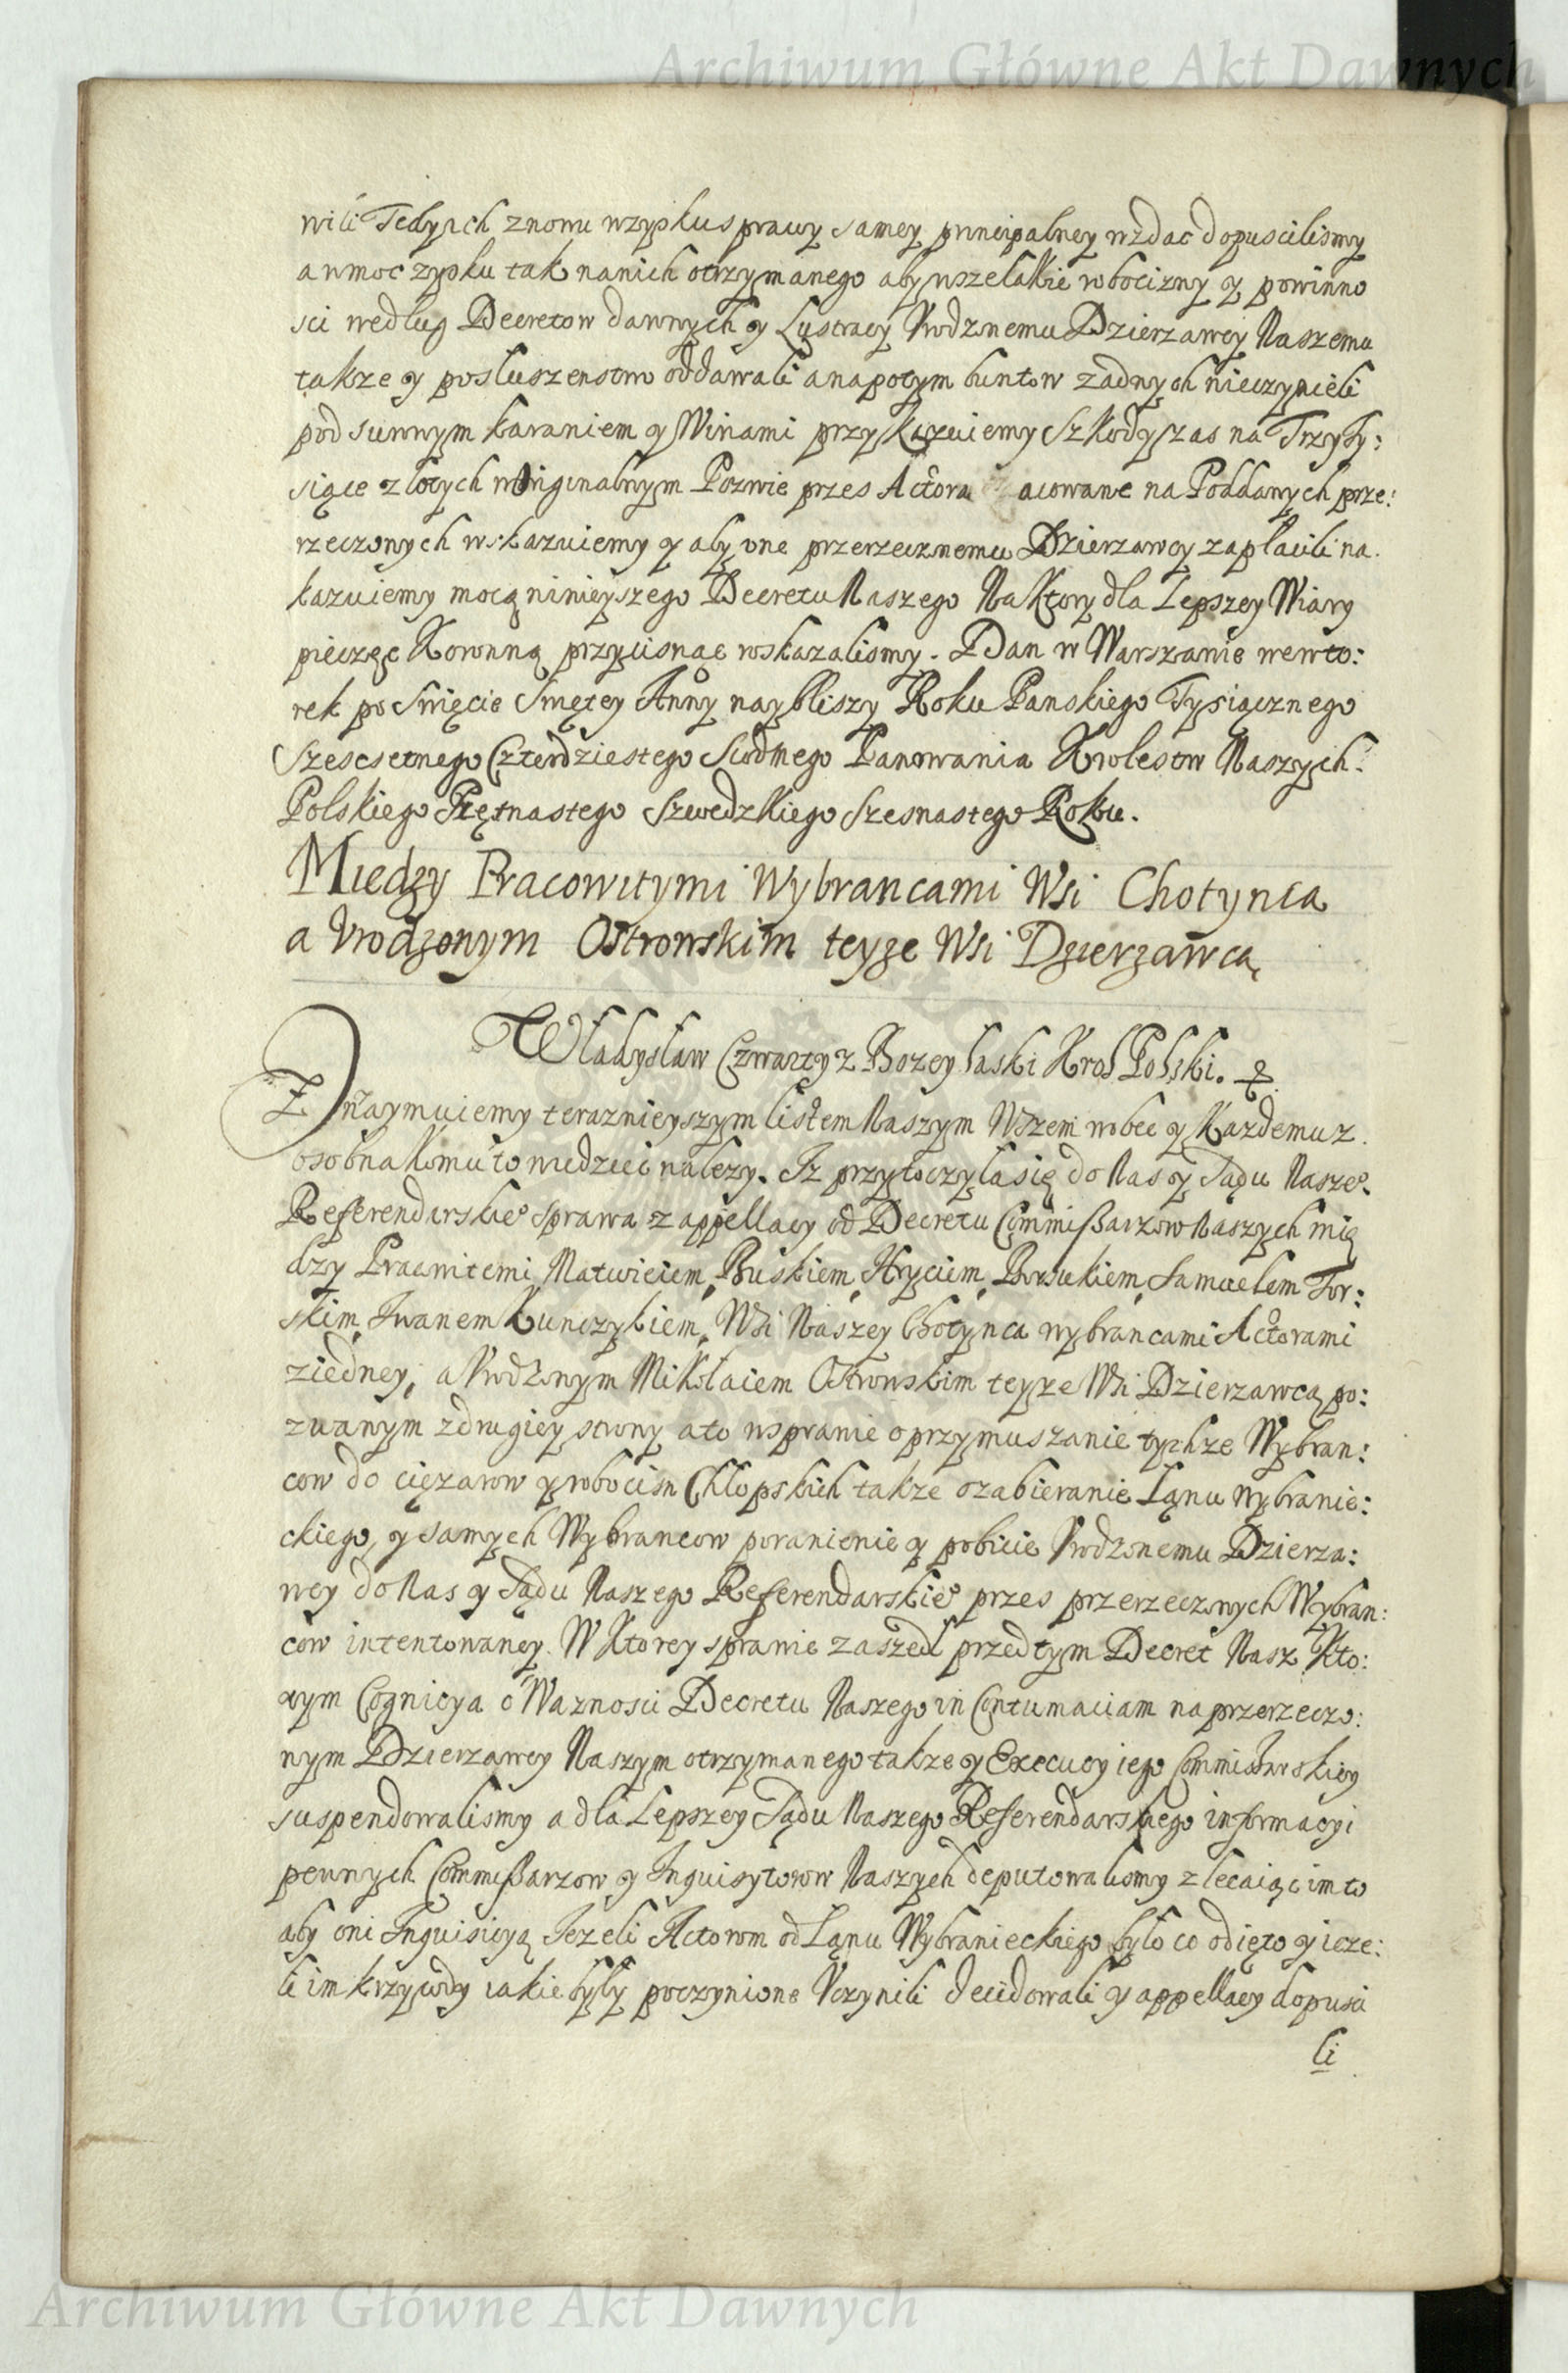 Archiwum Główne Akt Dawnych
wili Tedy ich znowu wzysku sprawy samey principalney wzdac dopuscilismy
a wmoc zysku tak nanich otrzymanego aby wszelakie robocizny y powinno
sci według Decretow dawnych y Lustracy Vrodzonemu Dzierzawcy Naszemu
takze y posłuszenstwo oddawali a napotym buntow zadnych nieczynieli
pod surowym karaniem y Winami przykazuiemy Szkody zas na Trzy Ty:
siące złotych w Originalnym Pozwie przes Actora acowane na Poddanych prze:
rzeczonych wskazuiemy y aby one przerzecznemu Dzierzawcy zapłacili na
kazuiemy mocą ninieyszego Decretu Naszego Na Ktory dla Lepszey Wiary
pieczęc Koronną przycisnąc roskazalismy. Dan w Warszawie wewto:
rek po Swięcie Swętey Anny naybliszy Roku Panskiego Tysiącznego
Szescsetnego Czterdziestego Siodmego Panowania Krolestw Naszych
Polskiego Piętnastego Szwedzkiego Szesnastego Roku.
Między Pracowitymi Wybrancami Wsi Chotynca
a Vrodzonym Ostrowskim teyze Wsi Dzierzawcą
Władysław Czwarty z Bozey Łaski Krol Polski.
Znaymuiemy teraznieyszym listem Naszym Wszem wobec y Kazdemu z
osobna Komu to wiedziec nalezy. Iz przytoczyła się do Nas y Sądu Naszeo
Referendarskieo Sprawa z appellacy od Decretu Commissarzow Naszych mię
dzy Pracowitemi Matwieiem, Buskiem, Hryciem, Borsukiem, Samuelem Tor:
skim, Iwanem Kunczykiem, Wsi Naszey Chotynca wybrancami Actorami
ziedney, a Vrodzonym Mikołaiem Ostrowskim teyze Wsi Dzierzawcą po:
zwanym zdrugiey strony a to wsprawie o przymuszanie tychze Wybran:
cow do cięzarow y robocizn Chłopskich takze o zabieranie Łanu Wybranie:
ckiego, y samych Wybrancow poranienie y pobicie Vrodzonemu Dzierza:
wcy do Nas y Sądu Naszego Referendarskieo przes przerzeczonych Wybran:
cow intentowaney. W Ktorey sprawie zaszedł przedtym Decret Nasz Kto:
rym Cognicya o Waznosci Decretu Naszego in Contumaciam na przerzeczo:
nym Dzierzawcy Naszym otrzymanego takze y Execucy iego Commissarskiey
suspendowalismy a dla Lepszey Sądu Naszego Referendarskiego informacyi
pewnych Commissarzow y Inquisytorow Naszych deputowalismy zlecaiąc im to
aby oni Inquisicyą Iezeli Actorom od Łanu Wybranieckiego było co odięto y ieze:
li im krzywdy iakie były poczynione Vczynili decidowali y appellacy dopusci
li
Archiwum Główne Akt Dawnych